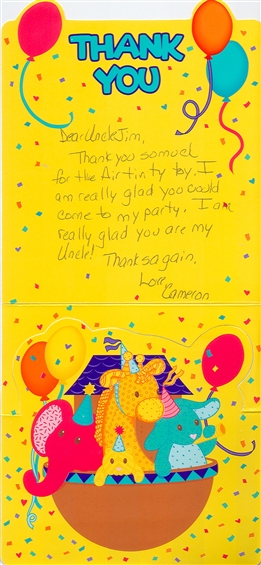 THANK
YOU
Dear Uncle Jim,
Thank you so much
for the Airtinty toy. I
am really glad you could
come to my party. I am
really glad you are my
Uncle! Thanks again.
Love,
Cameron